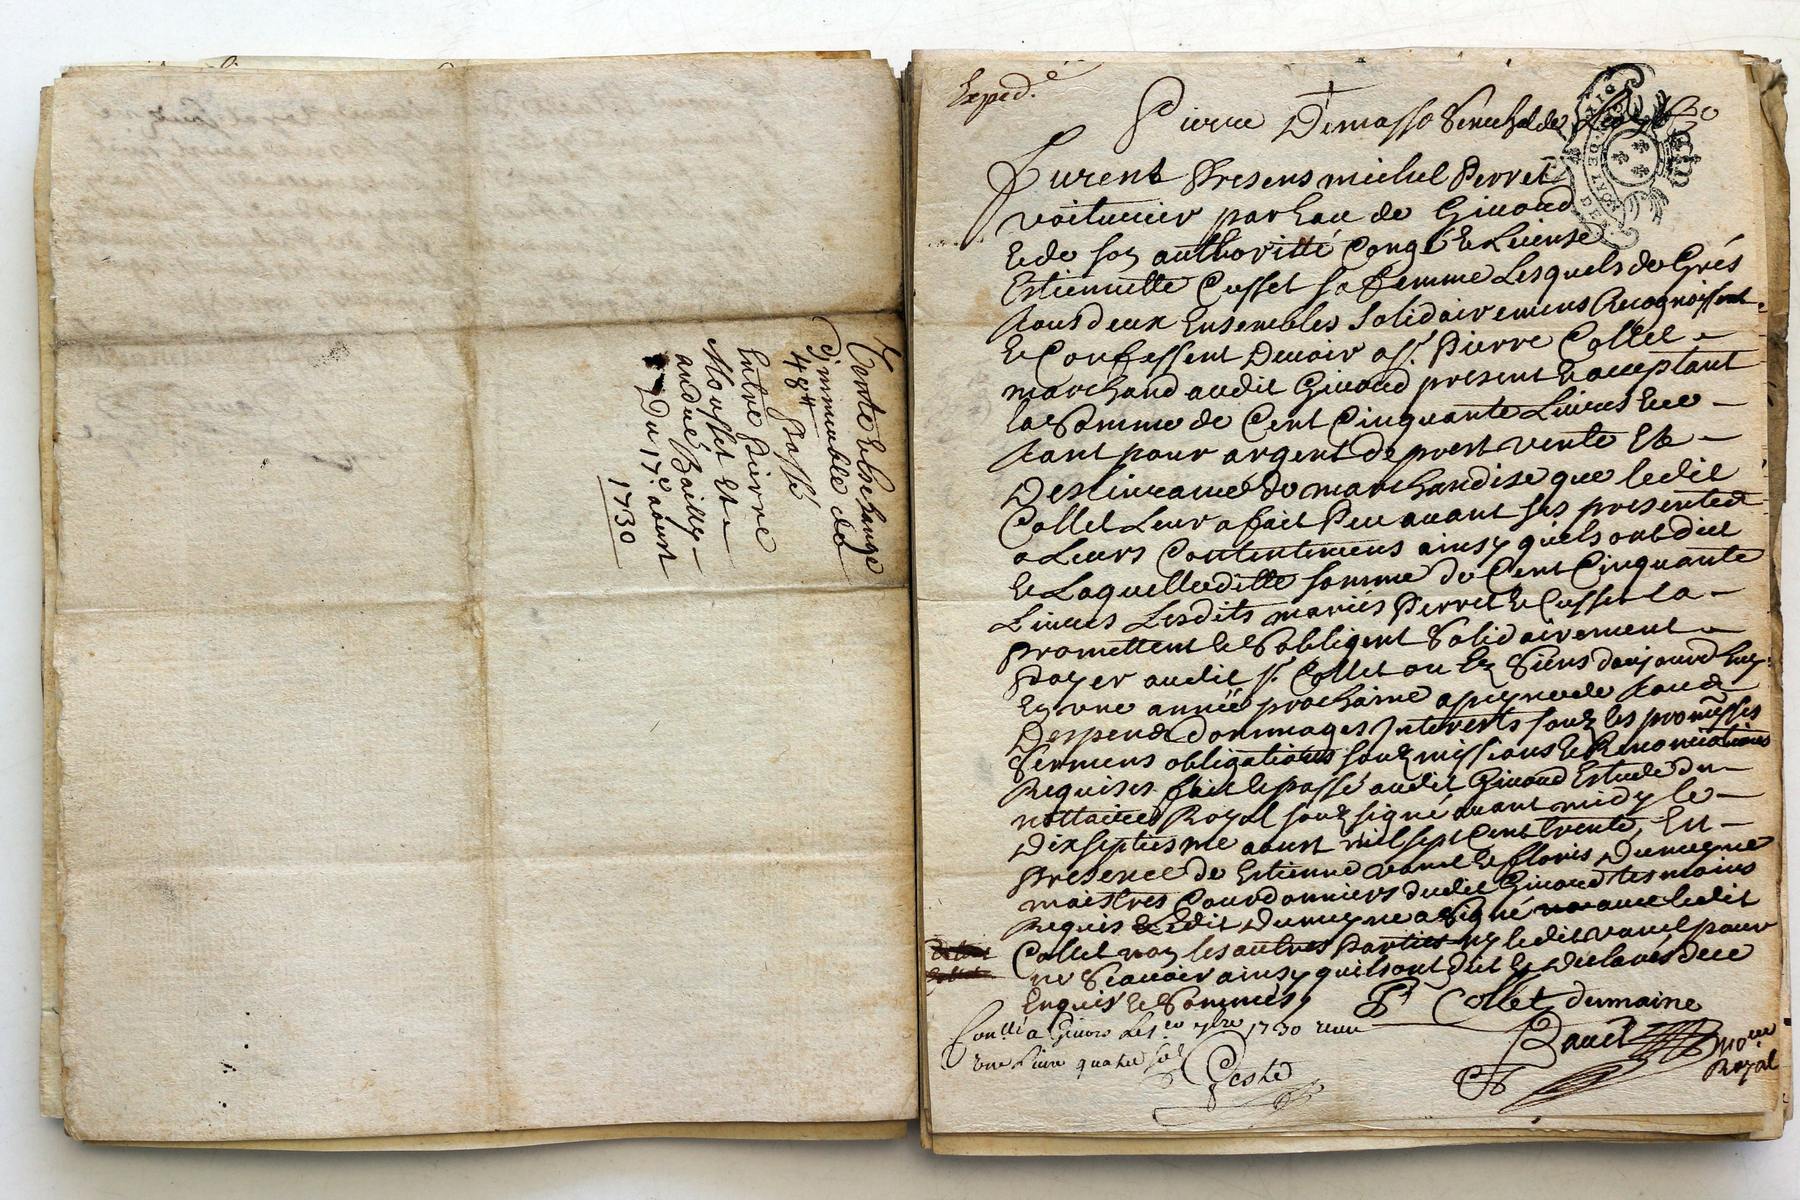 Vente et eschange
d'immeuble de
48# passé
Entre Pierre
Mousset Et
andré Bailly
Du 17e aoust
1730
Exped.é
Pierre Demasso Seneschal de Lyon
Furent Presens michel Perret
voiturier par eau de Givord
Et de son authoritté Congé Et License
Estiennette Cusset sa femme Lesquels de Grés
tous deux Ensembles Solidairemens Recognoissent
Et Confessent Devoir a Sr. Pierre Collet
marchand audit Givord present Et acceptant
la Somme de Cent Cinquante Livres Et ce
tant pour argent de prest vente Et
Deslivrance de marchandise que ledit
Collet Leur a fait Peu avant ses presentes
a Leurs Contentemens ainsy quils ont dit
Et Laquelleditte somme de Cent Cinquante
Livres Lesdits mariés Perret Et Cusset la
Promettent Et S'obligent Solidairement
Payer audit Sr. Collet ou Es Siens daujourd'huy
En une année prochaine a peyne de tous
Despens Dommages Interests souz les promesses
Sermens obligations souzmissions Et Renonciations
Requises fait Et passé audit Givord Estude du
nottaire Royal souzsigné avant midy le
Dixseptiesme aoust mil sept Cent trente, En
Presence de Estienne Et floris Dumayne
maistres Courdonniers dudit Givord tesmoins
Requis Ledit Dumayne a Signé avec ledit
Collet non les autres Parties ny ledit pour
ne Scavoir ainsy quils ont dit Et Declarés de ce
Enquis Et Sommés,
P Collet dumaine
Conllé a Givors Le 1er 7bre 1730 receu
une Livre quatre sols
Geste
Bauet noere
Royal